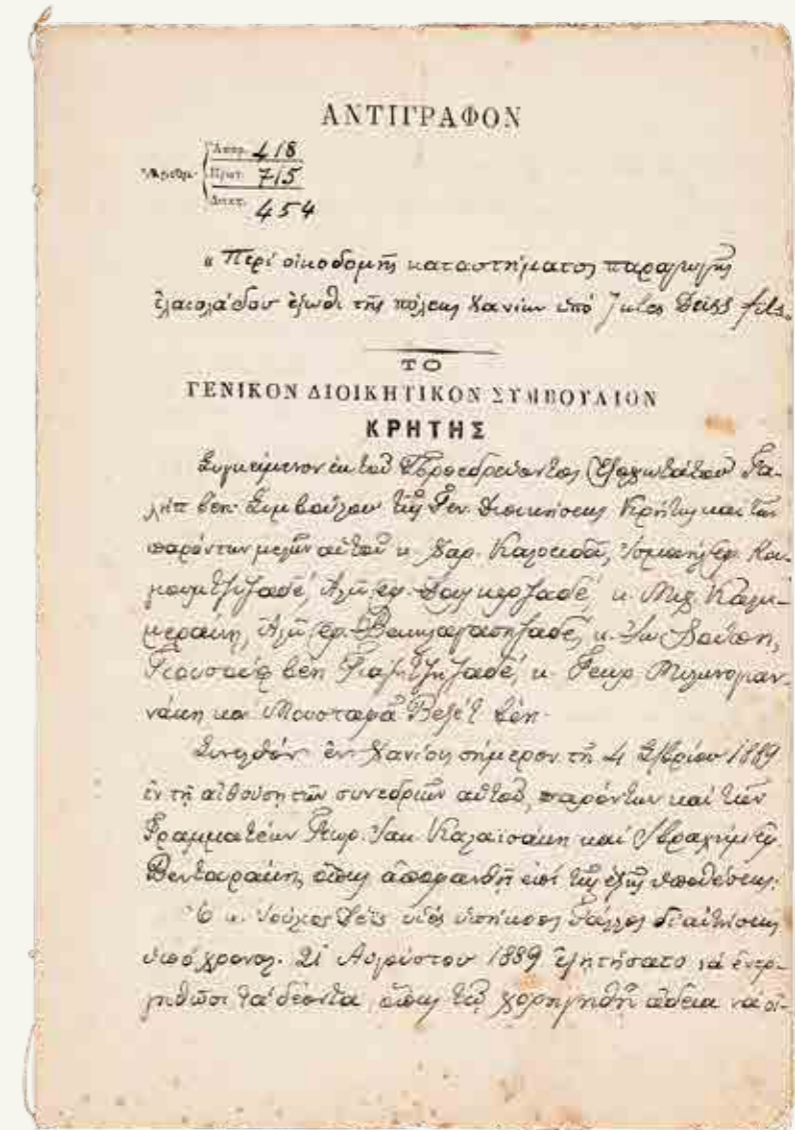 ΑΝΤΙΓΡΑΦΟΝ
Ἀριθμ.
Ἀποφ. 418
Πρωτ. 715
Διεκπ. 454
« Περὶ οἰκοδομῆς καταστήματος παραγωγῆς
ἐλαιολάδου ἔξωθι τῆς πόλεως Χανίων ὑπὸ Jules Deiss fils.
ΤΟ
ΓΕΝΙΚΟΝ ΔΙΟΙΚΗΤΙΚΟΝ ΣΥΜΒΟΥΛΙΟΝ
ΚΡΗΤΗΣ
Συγκείμενον ἐκ τοῦ Προεδρεύοντος Ἐξοχωτάτου Γα-
λὴπ βέη Συμβούλου τῆς Γεν. Διοικήσεως Κρήτης καὶ τῶν
παρόντων μελῶν αὐτοῦ κ. Χαρ. Ἰσμαὴλ ἐφ.
Ἀλῆ ἐφ. κ. Μιχ.
Ἀλῆ ἐφ. κ. Ἰω.
Γιουσοὺφ βέη κ. Γεωρ. Μυλωνογιαν-
νάκη καὶ Μουσταφᾶ βέη.
Συνελθὸν ἐν Χανίοις σήμερον τῇ 4 1889
ἐν τῇ αἰθούσῃ τῶν συνεδριῶν αὐτοῦ, παρόντων καὶ τῶν
Γραμματέων Γεωρ. Ἰακ. Καλαϊσάκη καὶ Ἰβραχὴμ ἐφ.
Βενταράκη, ὅπως ἀποφανθῇ ἐπὶ τῆς ἑξῆς ὑποθέσεως:
Ὁ κ. Ἰούλιος Δεῖς υἱὸς ὑπήκοος Γάλλος δι' αἰτήσεως
ὑπὸ χρονολ. 21 Αὐγούστου 1889 ἐζητήσατο νὰ ἐνερ-
γηθῶσι τὰ δέοντα, ὅπως τῷ χορηγηθῇ ἄδεια νὰ οἰ-